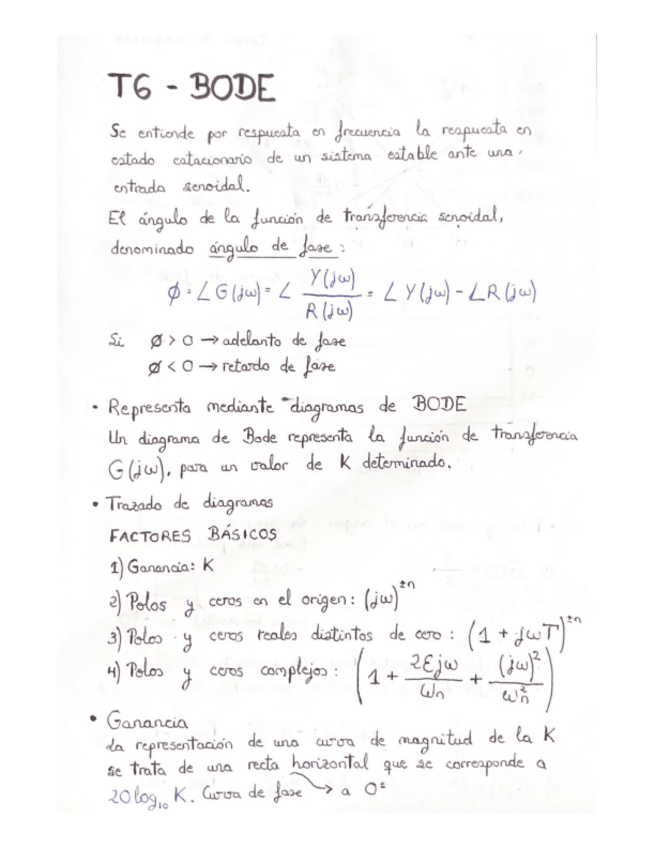 T6 - BODE
Se entiende por respuesta en frecuencia la respuesta en
estado estacionario de un sistema estable ante una
entrada senoidal.
El ángulo de la función de transferencia senoidal,
denominado ángulo de fase:
φ = ∠G(jω) = ∠ Y(jω)/R(jω) = ∠Y(jω) - ∠R(jω)
Si φ > 0 → adelanto de fase
φ < 0 → retardo de fase
• Representa mediante diagramas de BODE
Un diagrama de Bode representa la función de transferencia
G(jω), para un valor de K determinado.
• Trazado de diagramas
FACTORES BÁSICOS
1) Ganancia: K
2) Polos y ceros en el origen: (jω)^±n
3) Polos y ceros reales distintos de cero: (1 + jωT)^±n
4) Polos y ceros complejos: (1 + 2Ejω/ωn + (jω)²/ωn²)
• Ganancia
La representación de una curva de magnitud de la K
se trata de una recta horizontal que se corresponde a
20log₁₀ K. Curva de fase → a 0º